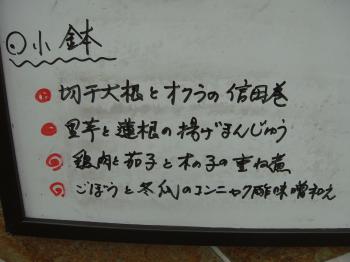 小鉢
切干大根とオクラの信田巻
里芋と蓮根の揚げまんじゅう
鶏肉と茄子と木の子の重ね煮
ごぼうと冬瓜のコンニャク酢味噌和え